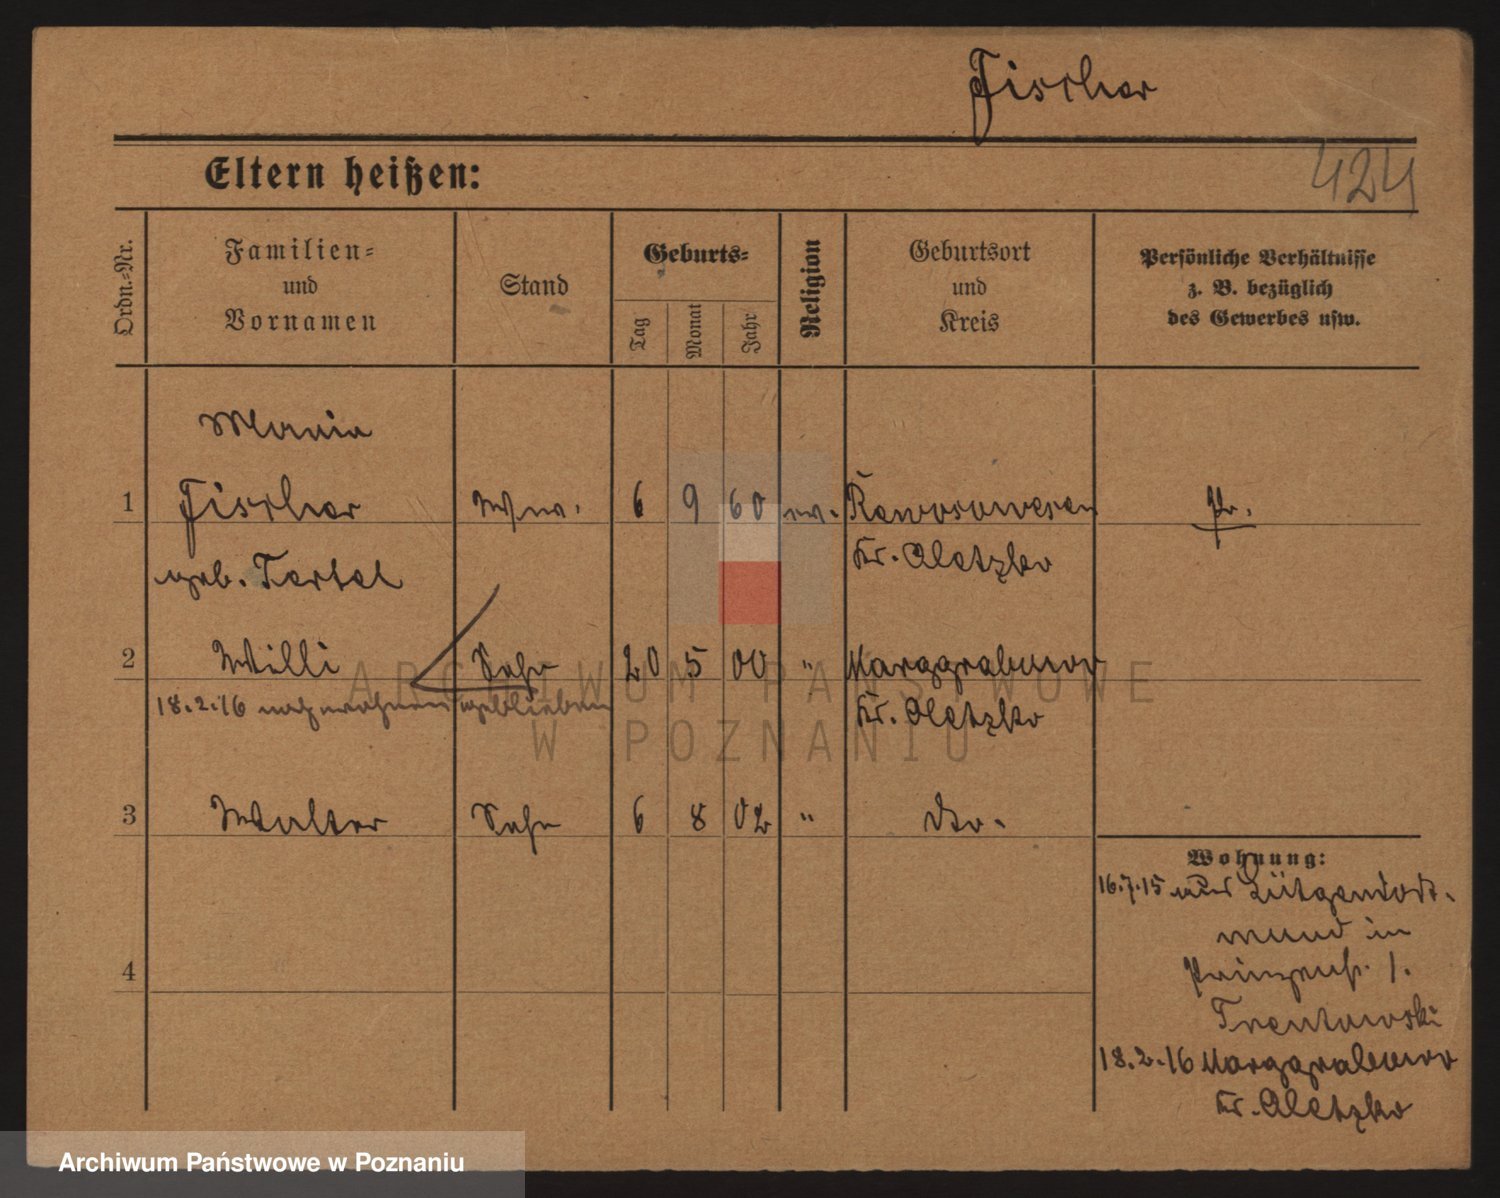 Fischer
424
Eltern heißen:
Ordn.-Nr.
Familien-
und
Vornamen
Stand
Geburts-
Tag
Monat
Jahr
Religion
Geburtsort
und
Kreis
Persönliche Verhältnisse
z. B. bezüglich
des Gewerbes usw.
Maria
1 Fischer Wwe. 6 9 60 ev. Pr.
geb. Tertel Kr. Oletzko
2 Willi Sohn 20 5 00 " Marggrabowa
18.2.16 geblieben Kr. Oletzko
3 Walter Sohn 6 8 02 " dto.
4
Wohnung:
16.7.15 aus Lütgendort-
mund in
Prinzenstr. 1.
Trentowski
18.2.16 Marggrabowa
Kr. Oletzko
ARCHIWUM PAŃSTWOWE
W POZNANIU
Archiwum Państwowe w Poznaniu